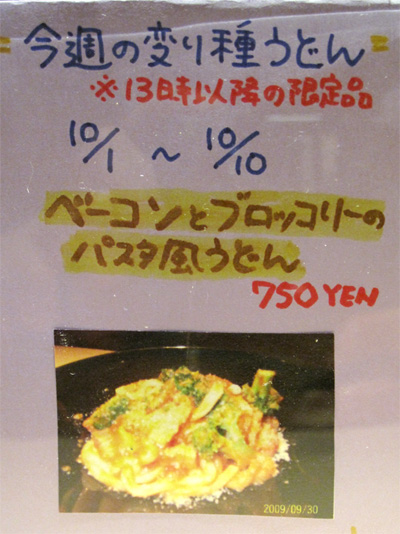 今週の変り種うどん
※13時以降の限定品
10/1 ~ 10/10
ベーコンとブロッコリーの
パスタ風うどん
750YEN
2009/09/30